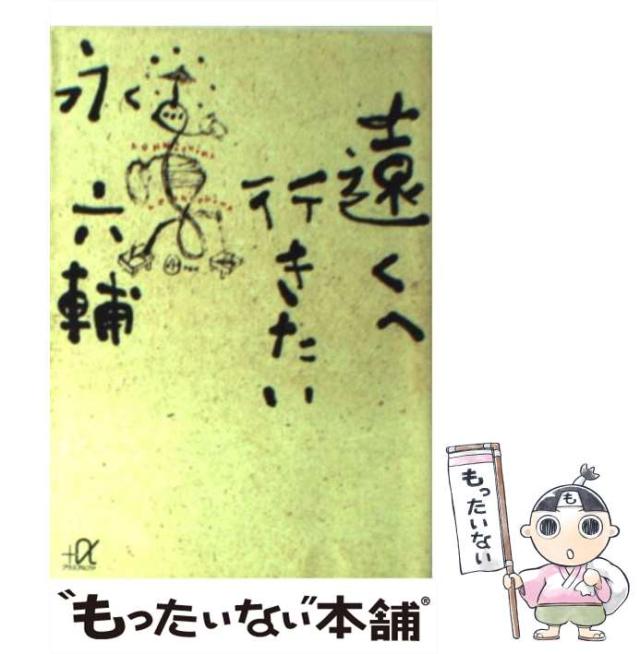 遠くへ
行きたい
永六輔
+α
もったいない
も
"もったいない"本舗®